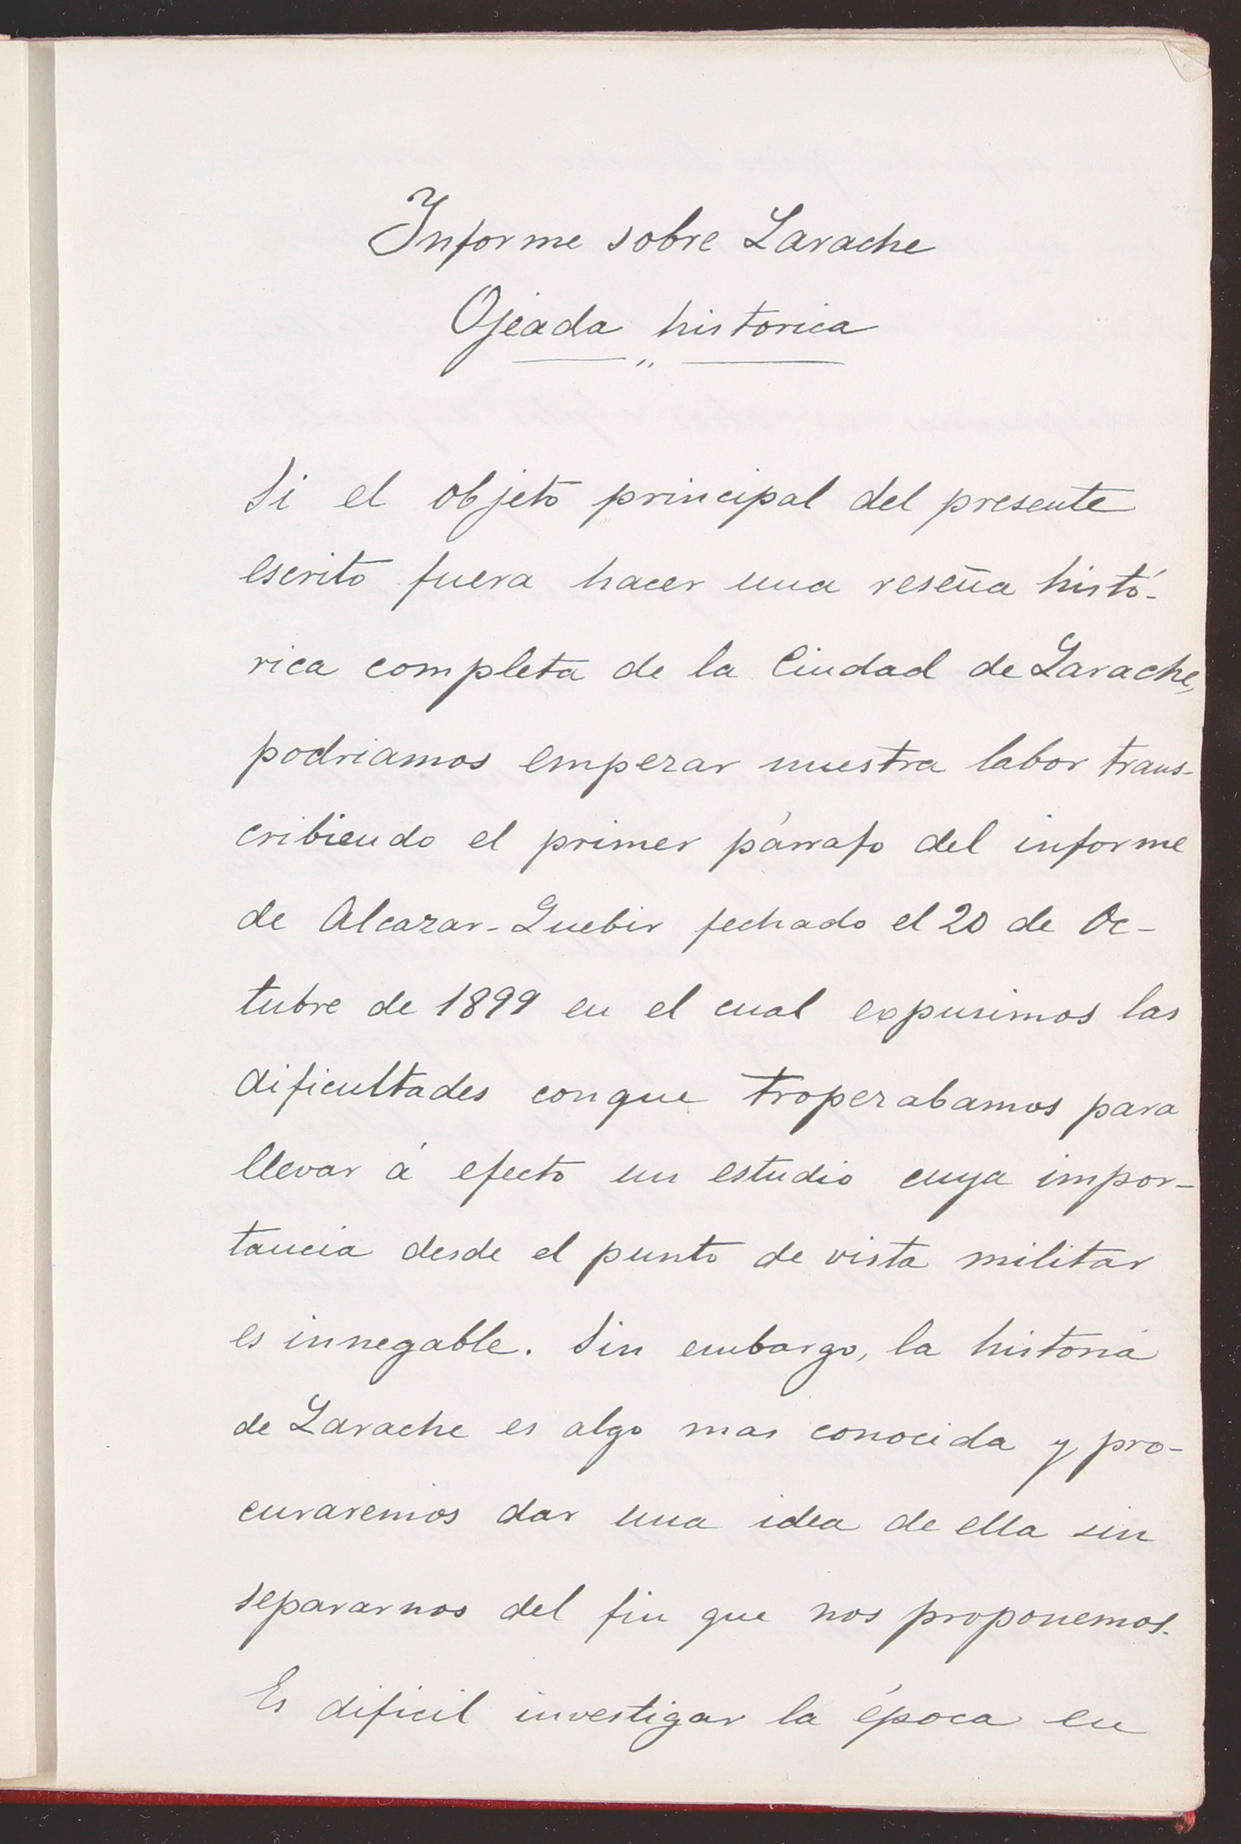 Informe sobre Larache
Ojeada historica
Si el objeto principal del presente
escrito fuera hacer una reseña histó-
rica completa de la Ciudad de Larache,
podriamos empezar nuestra labor trans-
cribiendo el primer párrafo del informe
de Alcazar-Quebir fechado el 20 de Oc-
tubre de 1899 en el cual expusimos las
dificultades conque tropezabamos para
llevar á efecto un estudio cuya impor-
tancia desde el punto de vista militar
es innegable. Sin embargo, la historia
de Larache es algo mas conocida y pro-
curaremos dar una idea de ella sin
separarnos del fin que nos proponemos.
Es dificil investigar la época en